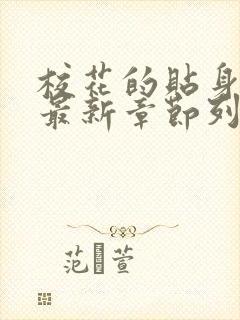 校花的貼身
最新章節列
范 萱